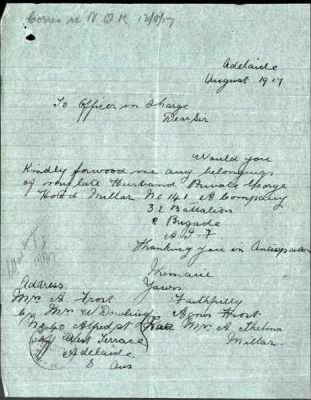 Adelaide
August 1917
To Officer in Charge
Dear Sir
Would you
Kindly forwood me any belongings
of my late Husband Private George
Millar No 141 A Company
32 Battalion
8 Brigade
A.I.F
Thanking you in Antisapation
I remain
Address Yours
Mrs A Frost Faithfully
c/o Mrs W Dowling Agnes Frost
No 40 Alfred St Mrs A Thelma
off West Terrace Millar
Adelaide
S Aus